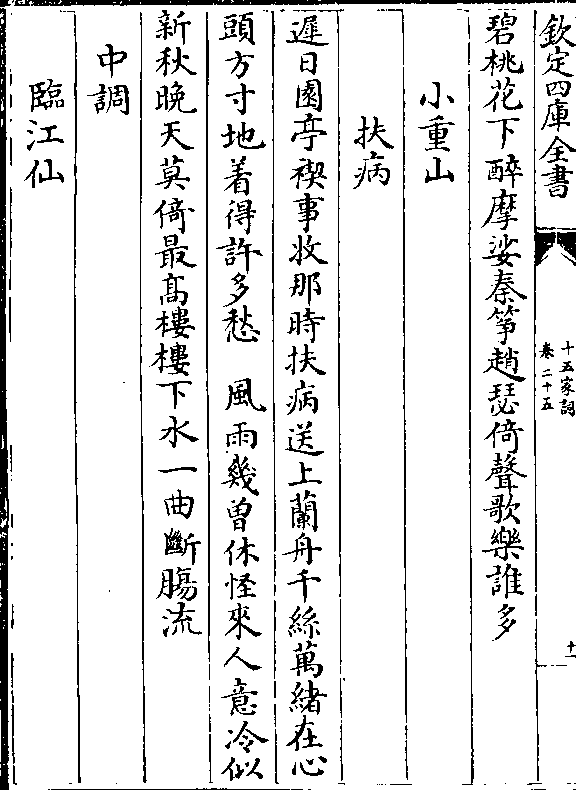 欽定四庫全書
十五家詞
卷二十五
十一
碧桃花下醉摩娑秦筝趙瑟倚聲歌樂誰多
小重山
扶病
遲日園亭禊事收那時扶病送上蘭舟千絲萬緒在心
頭方寸地着得許多愁 風雨幾曽休怪來人意冷似
新秋晚天莫倚最髙樓樓下水一曲斷腸流
中調
臨江仙